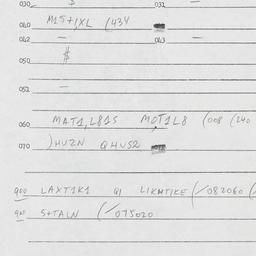 030 $ 031 —
040 M15+,XL (434
042 — 043 —
050 $
052 —
060 MAT1,L81S MOT1L8 (008 (240
070 )HUZN QHUS2
900 LAXT1K1 61 LIKMT1KE (/082060 (
901 S+TALN (/075020